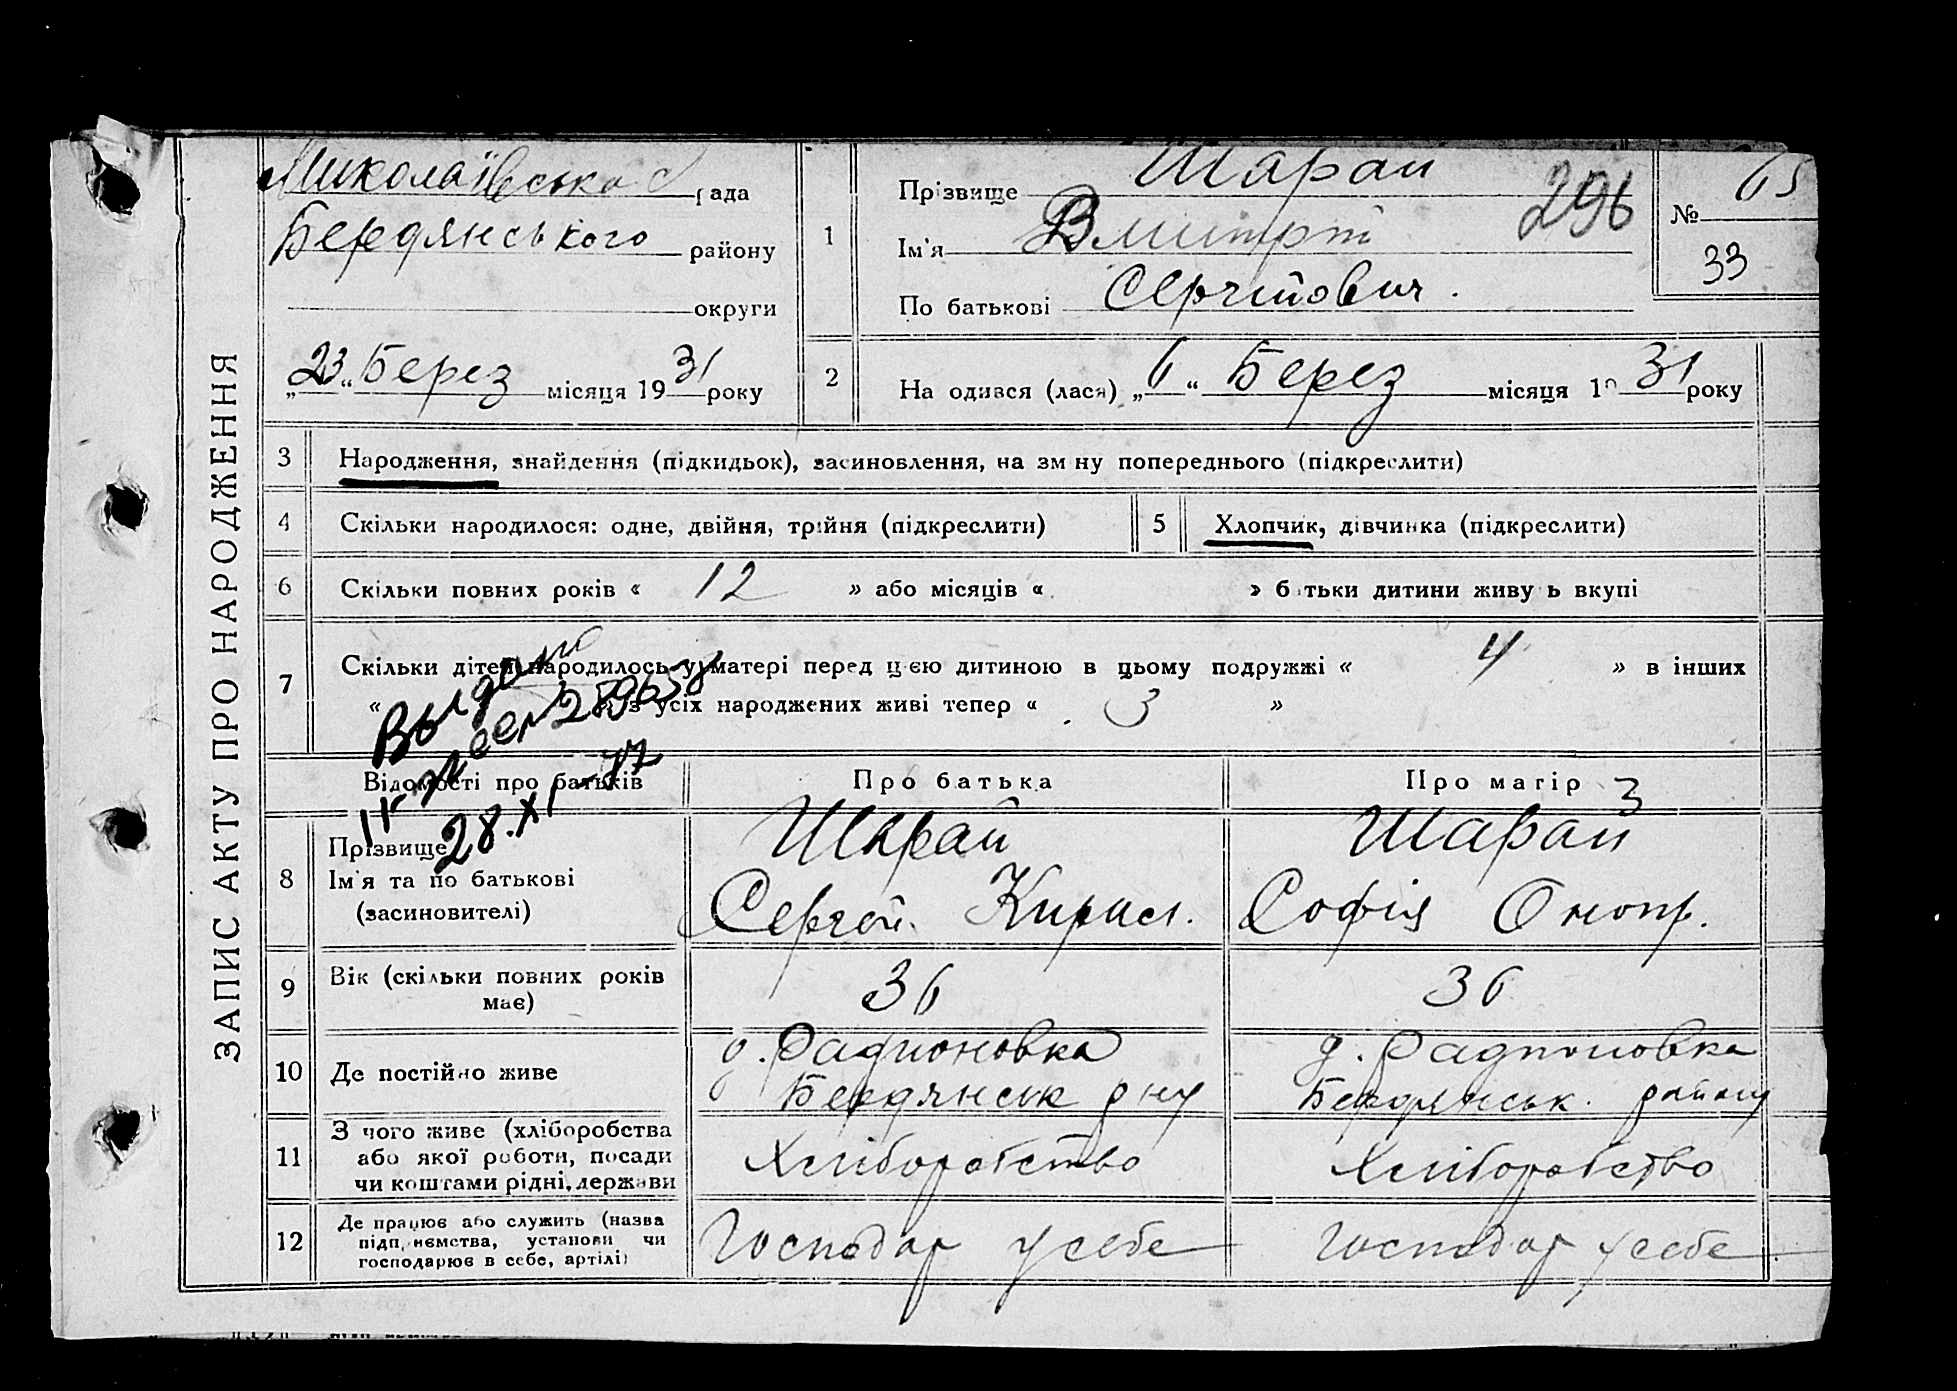 ЗАПИС АКТУ ПРО НАРОДЖЕННЯ
Миколаївська с рада
Бердянського району
округи
„23“ Берез місяця 1931 року
1
Прізвище Шарай
Ім'я Дмитрій
По батькові Сергійович.
296
№ 65
33
2
На одився (лася) „6“ Берез місяця 1931 року
3 Народження, знайдення (підкидьок), засиновлення, на зм ну попереднього (підкреслити)
4 Скільки народилося: одне, двійня, трійня (підкреслити)
5 Хлопчик, дівчинка (підкреслити)
6 Скільки повних років « 12 » або місяців « » б тьки дитини живу ь вкупі
7 Скільки дітей народилось у матері перед цією дитиною в цьому подружжі « 4 » в інших
« » з усіх народжених живі тепер « 3 »
28.XI-77
Відомості про батьків
Про батька
Про матір 3
8
Прізвище
Ім'я та по батькові
(засиновителі)
Шарай
Сергей. Кирил.
Шарай
Софія Онопр.
9
Вік (скільки повних років
має)
36
36
10 Де постійно живе
д. Радионовка
Бердянськ рну
д. Радионовка
Бердянськ. району
11
З чого живе (хліборобства
або якої роботи, посади
чи коштами рідні, держави
Хліборобство
Хліборобство
12
Де працює або служить (назва
підп иємства, установи чи
господарює в себе, артілі)
Господар у себе
Господар у себе